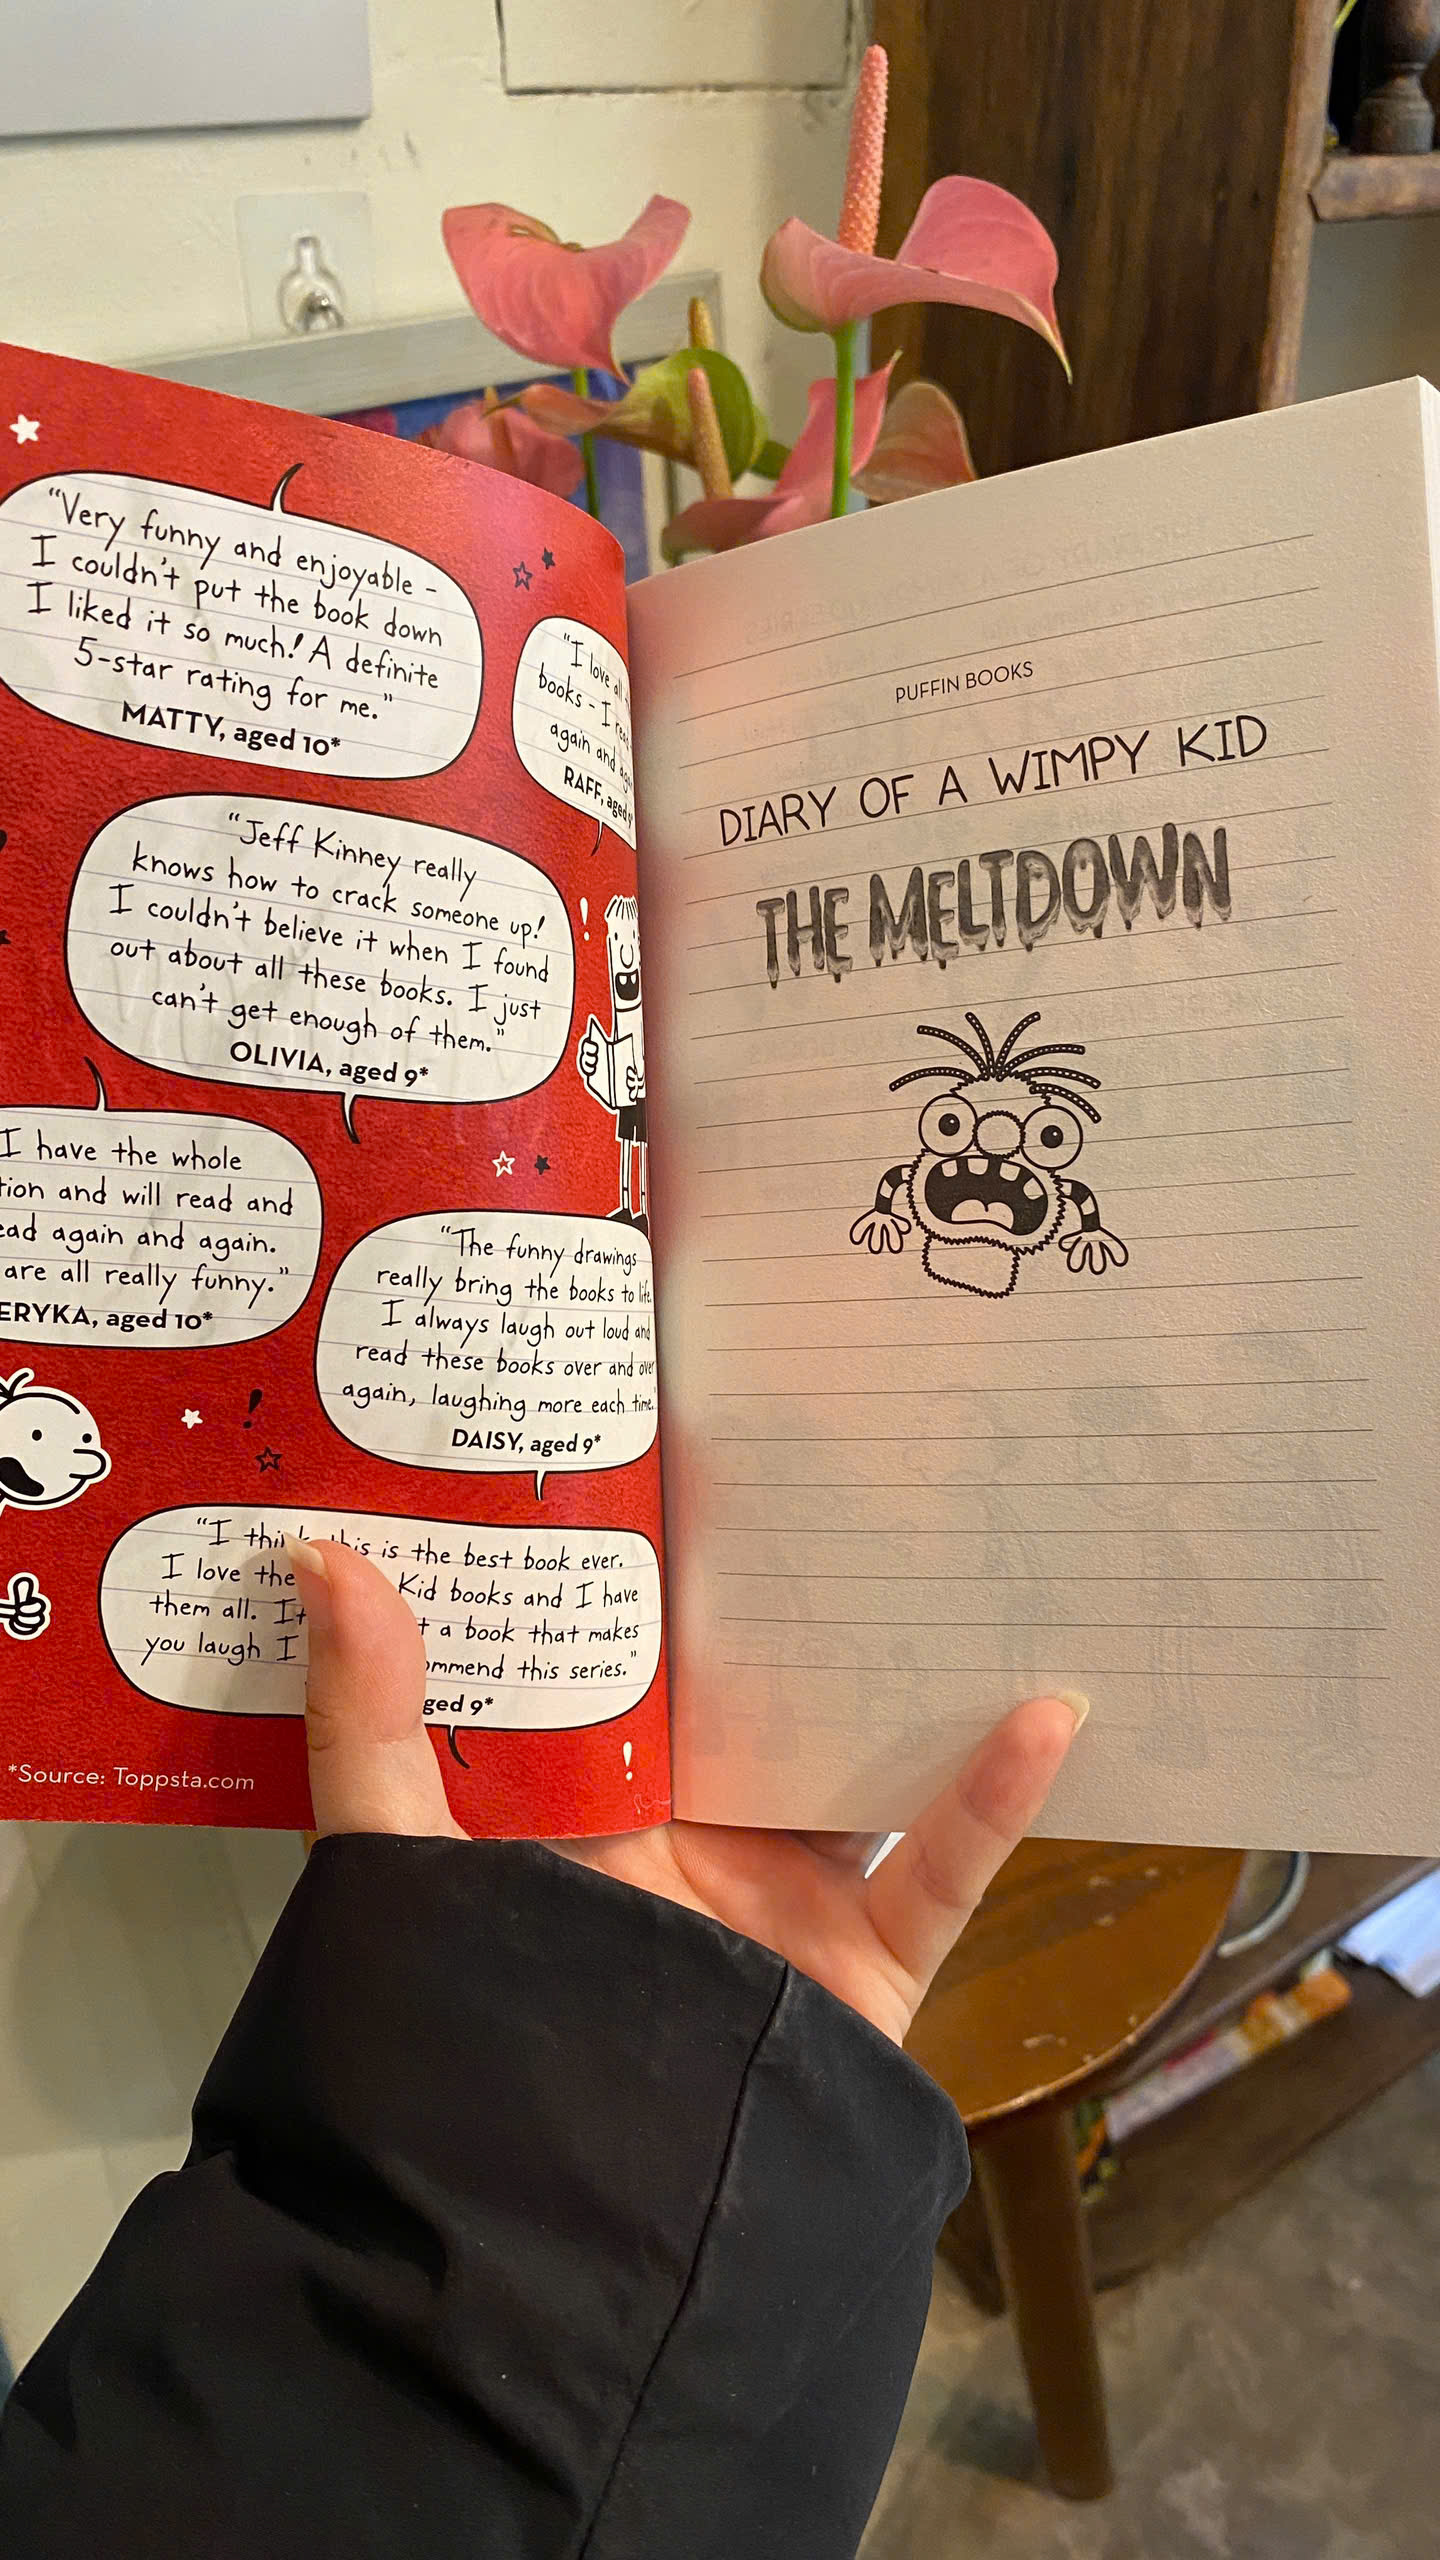 "Very funny and enjoyable -
I couldn't put the book down
I liked it so much! A definite
5-star rating for me."
MATTY, aged 10*
"I love all
books - I
again and
RAFF, aged
"Jeff Kinney really
knows how to crack someone up!
I couldn't believe it when I found
out about all these books. I just
can't get enough of them."
OLIVIA, aged 9*
I have the whole
and will read and
again and again.
are all really funny."
aged 10*
"The funny drawings
really bring the books to life.
I always laugh out loud and
read these books over and over
again, laughing more each time."
DAISY, aged 9*
"I think this is the best book ever.
I love the Kid books and I have
them all. a book that makes
you laugh I this series."
aged 9*
*Source: Toppsta.com
PUFFIN BOOKS
DIARY OF A WIMPY KID
THE MELTDOWN